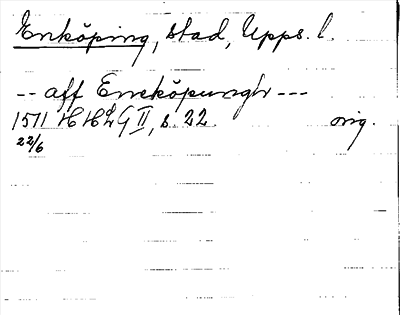 Enköping, stad, Upps. l.
-- aff Eneköpungh ---
1511 HHLG II, s. 22 orig.
22/6